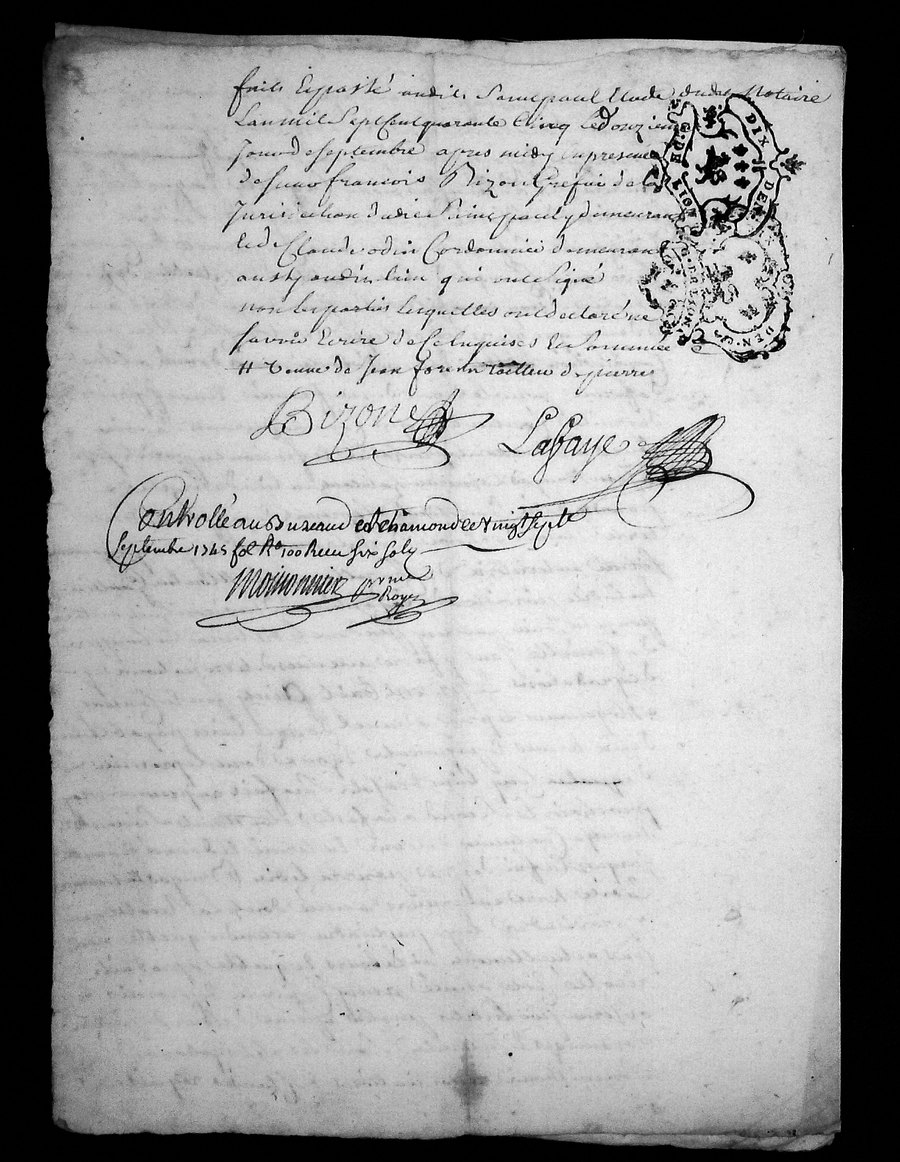 faits Et passé audit Saint paul Etude dudit Notaire
Lan mil Sept Cent quarante Cinq Le douzieme
Jour de septembre apres midy En presence
de francois Bizon Grefié de la
Jurisdiction dudit Saint paul y demeurant
Et de Claude odin Cordonnier demeurant
aussy audit lieu qui ont signé
non les parties lesquelles ont declaré ne
savoir Ecrire de Ce Enquises Et Sommée
# veuve de Jean tailleur de pierre
Bizon
Lafaye
Controllé au Bureau de st chamond le vingt sept
septembre 1745 fol Ro 100 Receu six sols
Moisonnier
DIX DEN
LION
DEN